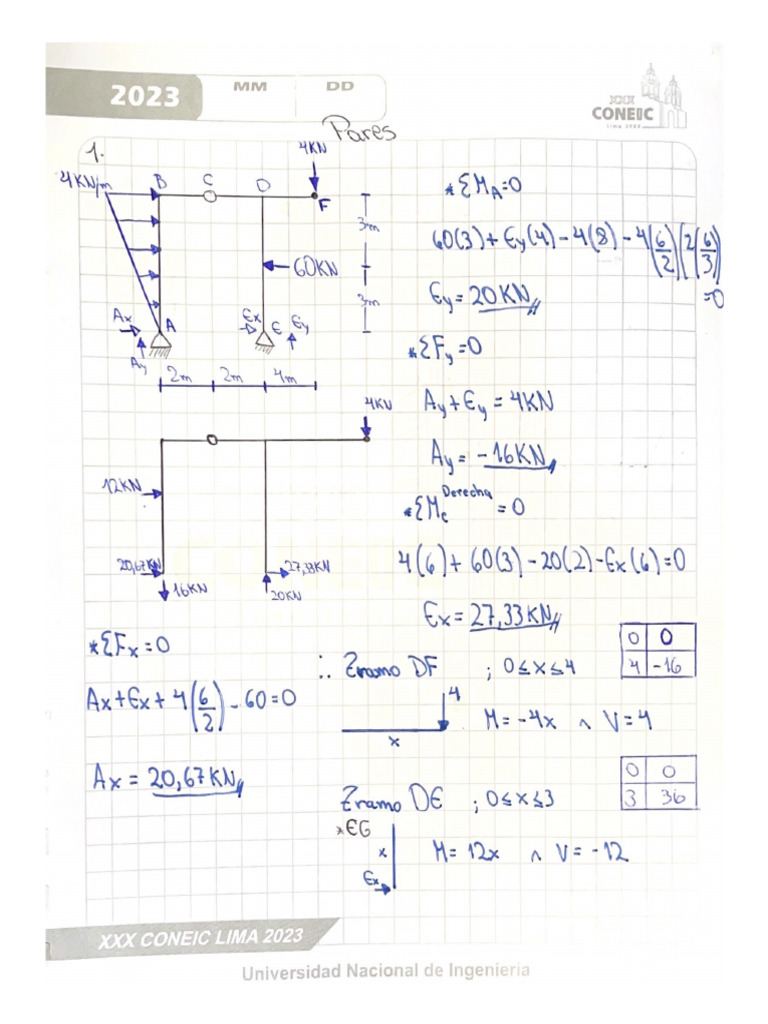 2023
MM
DD
XXX
CONEIC
Lima 2023
Pares
1.
4KN/m
B
C
D
4KN
F
3m
60KN
3m
Ax
A
Ay
Ex
E
Ey
2m
2m
4m
*ΣM_A=0
60(3)+Ey(4)-4(8)-4(6/2)(2(6)/3)=0
Ey=20KN
*ΣFy=0
Ay+Ey=4KN
Ay=-16KN
*ΣMc^Derecha=0
4(6)+60(3)-20(2)-Ex(6)=0
Ex=27,33KN
4KN
12KN
20,67KN
16KN
27,33KN
20KN
*ΣFx=0
Ax+Ex+4(6/2)-60=0
Ax=20,67KN
∴ Tramo DF ; 0≤x≤4
0 0
4 -16
4
x
M=-4x ∧ V=4
Tramo DE ; 0≤x≤3
0 0
3 36
*EG
x
Ex
M=12x ∧ V=-12
XXX CONEIC LIMA 2023
Universidad Nacional de Ingeniería